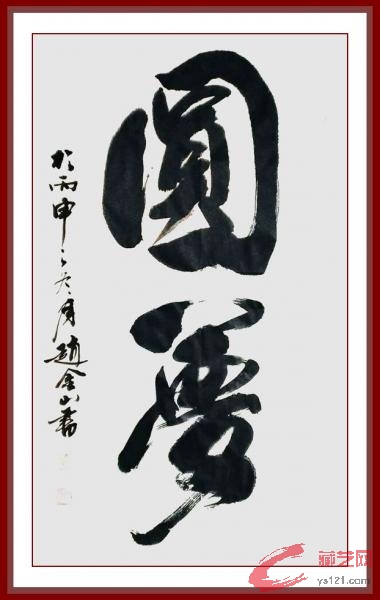 圓夢
於丙申之冬月趙金山書
藏艺网
ys121.com